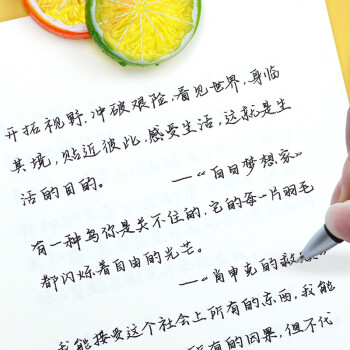 开拓视野,冲破艰险,看见世界,身临
其境,贴近彼此,感受生活,这就是生
活的目的。
——“白日梦想家”
有一种鸟你是关不住的,它的每一片羽毛
都闪烁着自由的光芒。
——“肖申克的救赎”
我能接受这个社会上所有的东西,我能
所有的因果,但不代